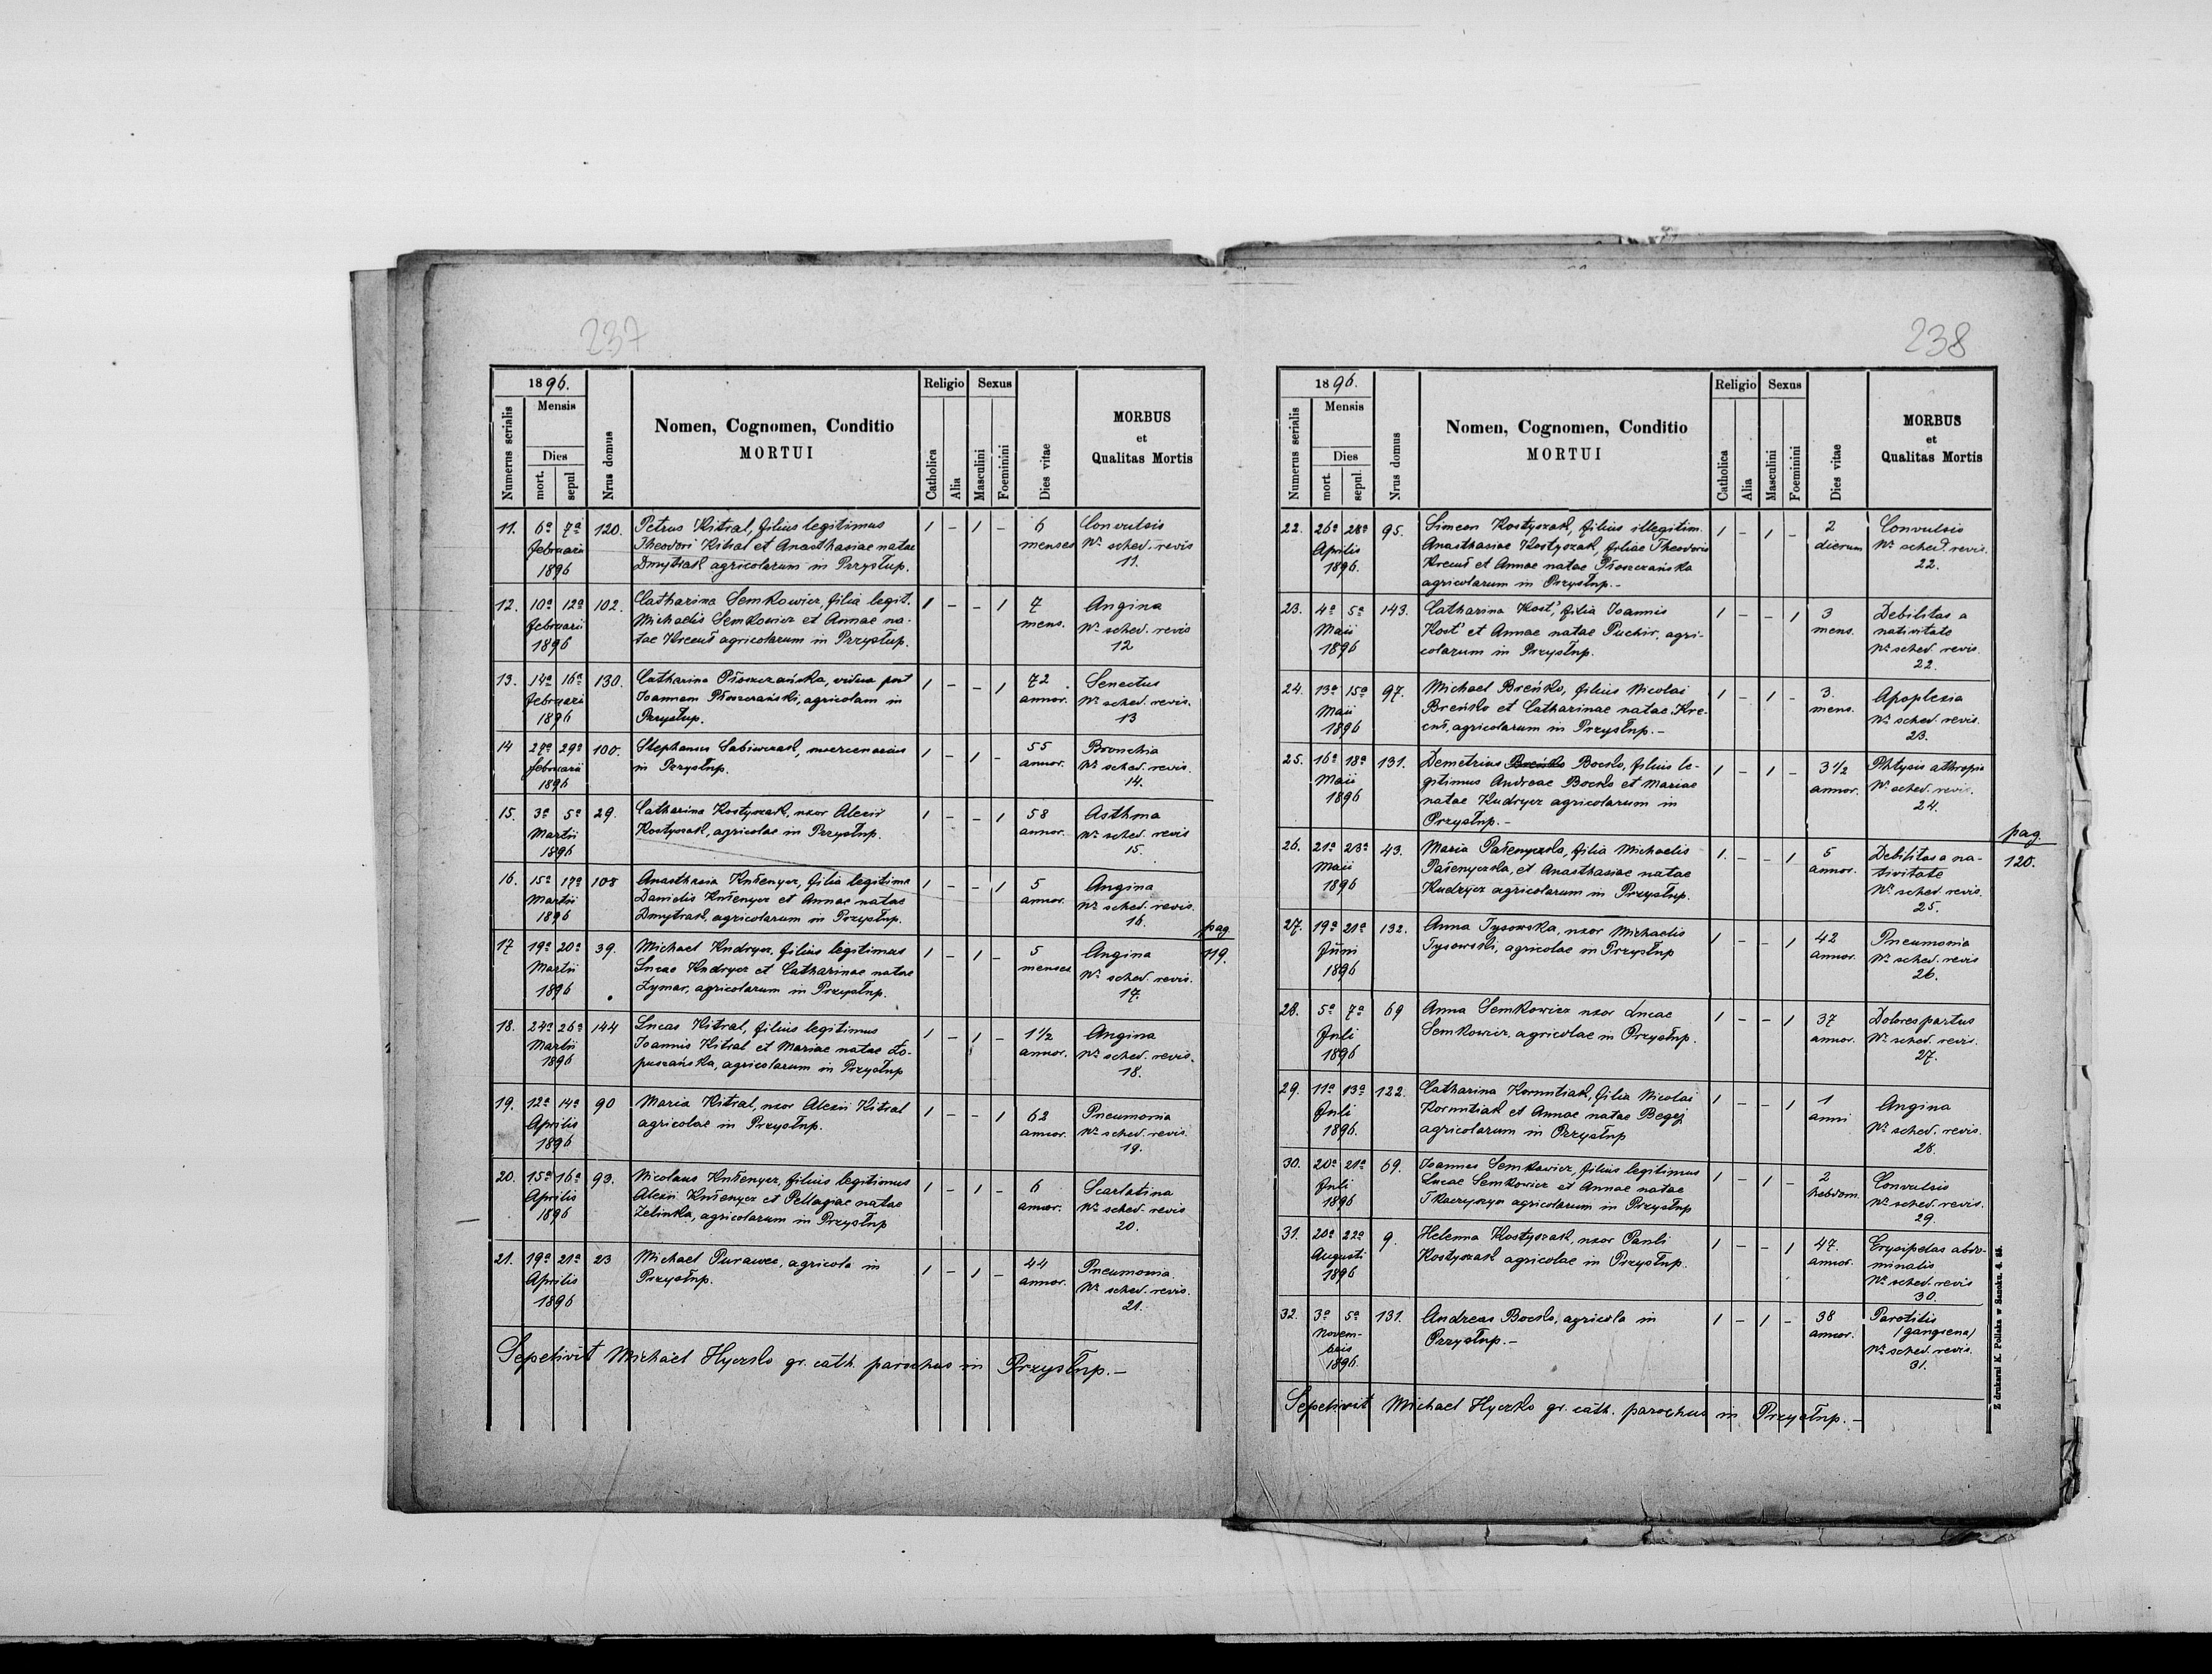 237
1896.
Numerus serialis
Mensis
Dies
mort.
sepul.
Nrus domus
Nomen, Cognomen, Conditio
MORTUI
Religio
Catholica
Alia
Sexus
Masculini
Foeminini
Dies vitae
MORBUS
et
Qualitas Mortis
11. 6a 7a 120. Petrus Kitral, filius legitimus 1 – 1 – 6 Convulsis
februarii Theodori Kitral et Anasthasiae natae menses No sched. revis
1896 Dmytrak agricolarum in Przysłup. 11.
12. 10a 12a 102. Catharina Semkowicz, filia legit. 1 – – 1 7 Angina
februarii Michaelis Semkowicz et Annae na- mens. No sched. revis
1896 tae Krecuł agricolarum in Przysłup. 12
13. 14a 16a 130. Catharina Płoszczańska, vidua post 1 – – 1 72 Senectus
februarii Joannem Płoszczański, agricolam in annor. No sched. revis.
1896 Przysłup. 13
14 27a 29a 100. Stephanus Sabiwczak, mercenarius 1 – 1 – 55 Bronchia
februarii in Przysłup. annor. No sched. revis.
1896 14.
15. 3a 5a 29. Catharina Kostyszak, uxor Alexii 1 – – 1 58 Asthma
Martii Kostyszak, agricolae in Przysłup. annor. No sched. revis
1896 15.
16. 15a 17a 108 Anasthasia Kuśenycz, filia legitima 1 – – 1 5 Angina
Martii Danielis Kuśenycz et Annae natae annor. No sched. revis.
1896 Dmytrak, agricolarum in Przysłup. 16.
pag
119.
17 19a 20a 39. Michael Kudrycz, filius legitimus 1 – 1 – 5 Angina
Martii Lucae Kudrycz et Catharinae natae menses No sched. revis.
1896 Zymar, agricolarum in Przysłup. 17.
18. 24a 26a 144 Lucas Kitral, filius legitimus 1 – 1 – 1½ Angina
Martii Joannis Kitral et Mariae natae Ło- annor. No sched. revis.
1896 puszańska, agricolarum in Przysłup 18.
19. 12a 14a 90 Maria Kitral, uxor Alexii Kitral 1 – – 1 62 Pneumonia
Aprilis agricolae in Przysłup. annor. No sched. revis.
1896 19.
20. 15a 16a 93. Nicolaus Kuśenycz, filius legitimus 1 – 1 – 6 Scarlatina
Aprilis Alexii Kuśenycz et Pellagiae natae annor. No sched. revis
1896 Zelinka, agricolarum in Przysłup 20.
21. 19a 21a 23 Michael Purawec, agricola in 1 – 1 – 44 Pneumonia
Aprilis Przysłup. annor. No sched. revis.
1896 21.
Sepelivit Michael Hyczko gr. cath. parochus in Przysłup. –
238
1896.
Numerus serialis
Mensis
Dies
mort.
sepul.
Nrus domus
Nomen, Cognomen, Conditio
MORTUI
Religio
Catholica
Alia
Sexus
Masculini
Foeminini
Dies vitae
MORBUS
et
Qualitas Mortis
22. 26a 28a 95. Simeon Kostyszak, filius illegitim. 1 – 1 – 2 Convulsio
Aprilis Anasthasiae Kostyszak, filiae Theodoris dierum No sched. revis.
1896. Krecuł et Annae natae Płoszczańska 22.
agricolarum in Przysłup. –
23. 4a 5a 143. Catharina Kost', filia Joannis 1 – – 1 3 Debilitas a
Maii Kost' et Annae natae Puchir, agri- mens. nativitate
1896 colarum in Przysłup. No sched. revis.
22.
24. 13a 15a 97. Michael Breńko, filius Nicolai 1 – 1 – 3. Apoplexia
Maii Breńko et Catharinae natae Kre- mens. No sched. revis.
1896 cuł, agricolarum in Przysłup. – 23.
25. 16a 18a 131. Demetrius Breńko Bocko, filius le- 1 – 1 – 3½ Phtysis athropia
Maii gitimus Andreae Bocko et Mariae annor. No sched. revis.
1896 natae Kudrycz agricolarum in 24.
Przysłup. –
26. 21a 23a 43. Maria Paśenyczko, filia Michaelis 1. – – 1 5 Debilitas a na-
Maii Paśenyczko, et Anasthasiae natae annor. tivitate
1896 Kudrycz agricolarum in Przysłup. No sched. revis.
25.
pag.
120.
27. 19a 21a 132. Anna Tysowska, uxor Michaelis 1 – – 1 42 Pneumonia
Juni Tysowski, agricolae in Przysłup annor. No sched. revis
1896 26.
28. 5a 7a 69 Anna Semkowicz uxor Lucae 1 – – 1 37 Dolores partus
Juli Semkowicz, agricolae in Przysłup. annor. No sched. revis.
1896 27.
29. 11a 13a 122. Catharina Kornutiak, filia Nicolai 1 – – 1 1 Angina
Juli Kornutiak et Annae natae Begej anni No sched. revis.
1896. agricolarum in Przysłup 28.
30. 20a 21a 69. Joannes Semkowicz, filius legitimus 1 – 1 – 2 Convulsio
Juli Lucae Semkowicz et Annae natae hebdom. No sched. revis.
1896 Tkaczyszyn agricolarum in Przysłup 29.
31. 20a 22a 9. Helenna Kostyszak, uxor Pauli 1 – – 1 47. Erysipelas abdo-
Augusti Kostyszak agricolae in Przysłup. annor. minalis
1896 No sched. revis
30.
32. 3a 5a 131. Andreas Bocko, agricola in 1 – 1 – 38 Parotitis
Novem- Przysłup. – annor. (gangrena)
bris No sched. revis.
1896. 31.
Sepelivit Michael Hyczko gr. cath. parochus in Przysłup. –
Z drukarni K. Pollaka w Sanoku. 4. 85.